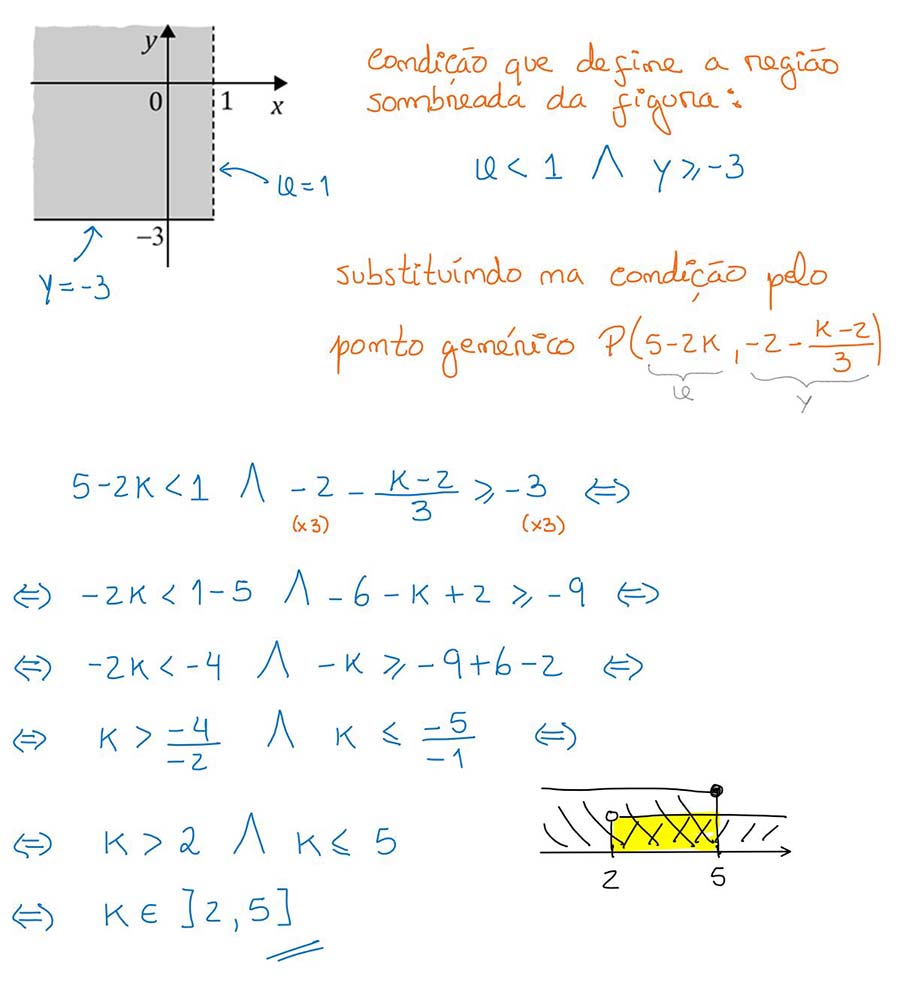 y
0 1 x
-3
x = 1
y = -3
condição que define a região
sombreada da figura:
x < 1 ∧ y ≥ -3
substituíndo na condição pelo
ponto genérico P(5-2k, -2 - (k-2)/3)
x y
5-2k < 1 ∧ -2 - (k-2)/3 ≥ -3 ⇔
(x3) (x3)
⇔ -2k < 1-5 ∧ -6 - k + 2 ≥ -9 ⇔
⇔ -2k < -4 ∧ -k ≥ -9+6-2 ⇔
⇔ k > -4/-2 ∧ k ≤ -5/-1 ⇔
⇔ k > 2 ∧ k ≤ 5
2 5
⇔ k ∈ ]2,5]